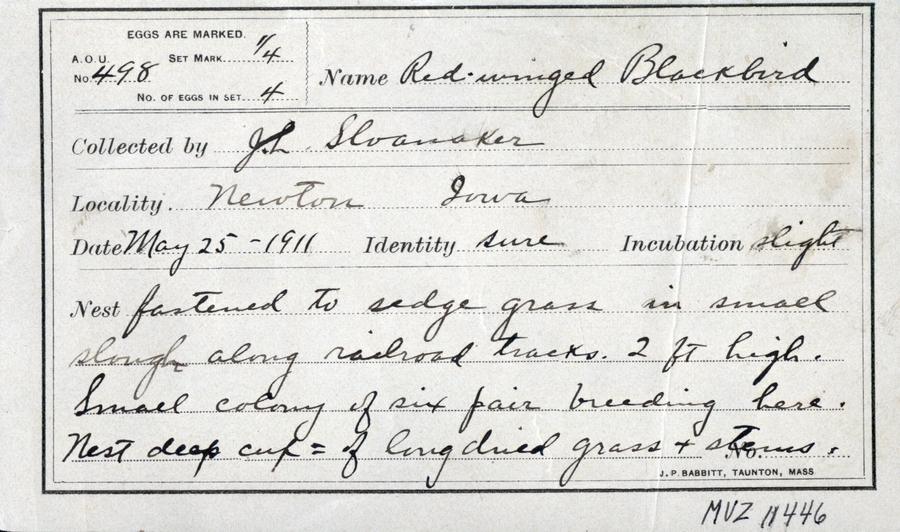 EGGS ARE MARKED.
A.O.U. No. 498 SET MARK 1/4
No. OF EGGS IN SET 4
Name Red-winged Blackbird
Collected by J.L. Sloanaker
Locality. Newton Iowa
Date May 25-1911 Identity sure Incubation slight
Nest fastened to sedge grass in small
slough along railroad tracks. 2 ft high.
Small colony of six pair breeding here.
Nest deep cup = of long dried grass + stems.
J. P. BABBITT, TAUNTON, MASS
MVZ 11446